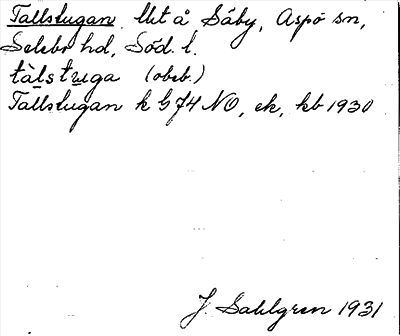 Tallstugan. Utt å Säby, Aspö sn,
Selebo hd, Söd. l.
tàlstuga (obeb.)
Tallstugan k G 74 NO, ek, kb 1930
J. Sahlgren 1931